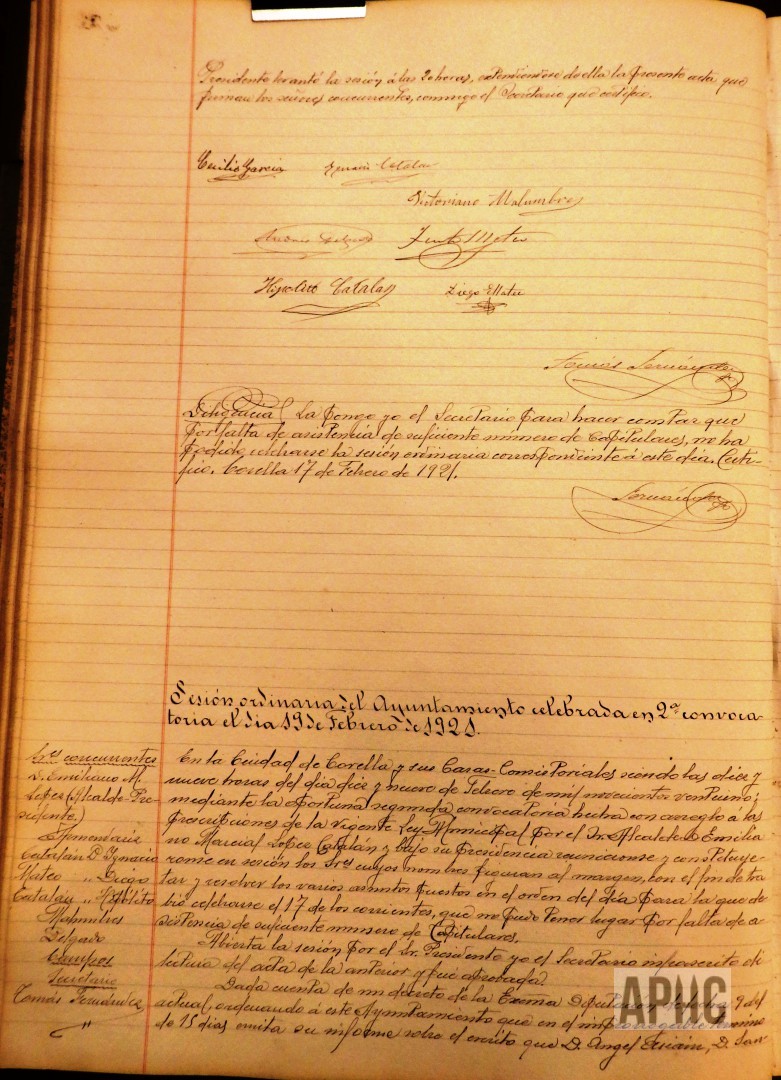 Presidente levantó la sesión á las 20 horas, extendiéndose de ella la presente acta que
firman los señores concurrentes, conmigo el Secretario que certifico.
Cecilio Garcia
Ignacio Catalan
Victoriano Malumbres
Antonio Delgado
Mateo
Hipolito Catalan
Diego Mateo
Tomás Fernández
Diligencia/ La pongo yo el Secretario para hacer constar que
por falta de asistencia de suficiente número de Capitulares, no ha
podido celebrarse la sesión ordinaria correspondiente á este día. Certi-
fico. Corella 17 de Febrero de 1921.
Fernández
Sesión ordinaria del Ayuntamiento celebrada en 2ª convoca
toria el dia 19 de Febrero de 1921.
Sres concurrentes
D. Emiliano M.
Lopez (Alcalde-Pre-
sidente.
Catalán D. Ignacio
Mateo „ Diego
Catalán „ Hipólito
Malumbres
Delgado
Campos
Secretario
Tomás Fernández
En la Ciudad de Corella y sus Casas-Comistoriales siendo las diez y
nueve horas del día diez y nueve de Febrero de mil novecientos veintiuno;
mediante la oportuna segunda convocatoria hecha con arreglo á las
prescripciones de la vigente Ley Municipal por el Sr. Alcalde D. Emilia
no Marcial Lopez Catalán y bajo su Presidencia reunieronse y constituye-
ronse en sesión los Sres cuyos nombres figuran al margen, con el fin de tra
tar y resolver los varios asuntos puestos en el orden del día para la que de
bió celebrarse el 17 de los corrientes, que no pudo tener lugar por falta de a-
sistencia de suficiente número de Capitulares.
Abierta la sesión por el Sr. Presidente yo el Secretario infrascrito dí
lectura del acta de la anterior y fué aprobada.
Dada cuenta de un decreto de la Excma Diputación fecha 9 del
actual ordenando á este Ayuntamiento que en el término
de 15 días emita su informe sobre el escrito que D. Angel D. San-
APHC